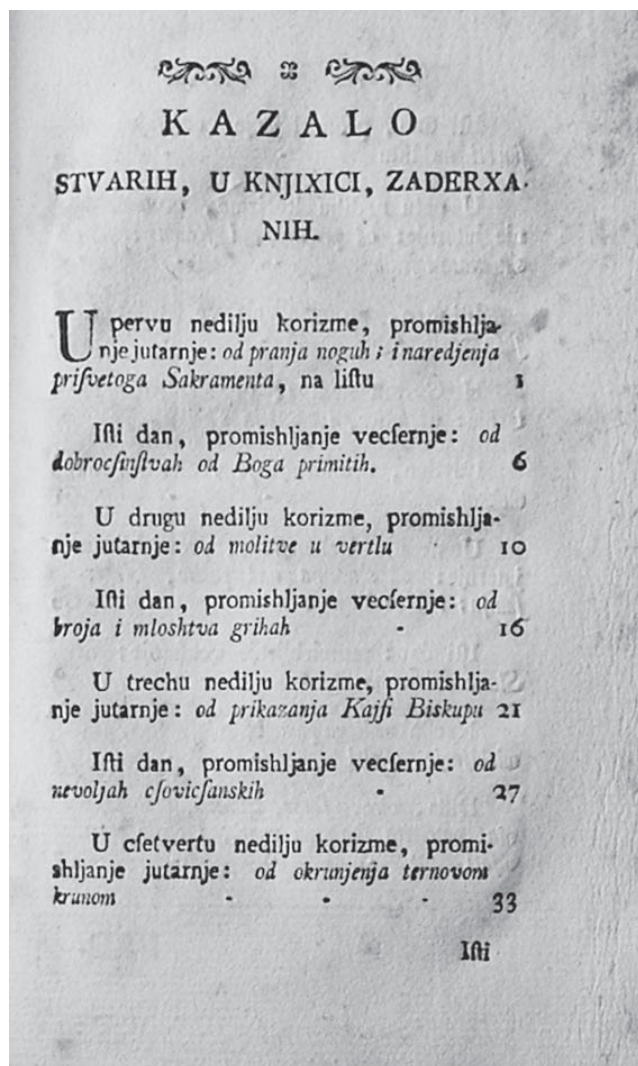 KAZALO
STVARIH, U KNJIXICI, ZADERXA-
NIH.
U pervu nedilju korizme, promishlja-
nje jutarnje: od pranja noguh; i naredjenja
priſvetoga Sakramenta, na liſtu 1
Iſti dan, promishljanje vecſernje: od
dobrocſinſtvah od Boga primitih. 6
U drugu nedilju korizme, promishlja-
nje jutarnje: od molitve u vertlu 10
Iſti dan, promishljanje vecſernje: od
broja i mloshtva grihah - 16
U trechu nedilju korizme, promishlja-
nje jutarnje: od prikazanja Kajfi Biskupu 21
Iſti dan, promishljanje vecſernje: od
nevoljah cſovicſanskih - 27
U cſetvertu nedilju korizme, promi-
shljanje jutarnje: od okrunjenja ternovom
krunom - - - 33
Iſti